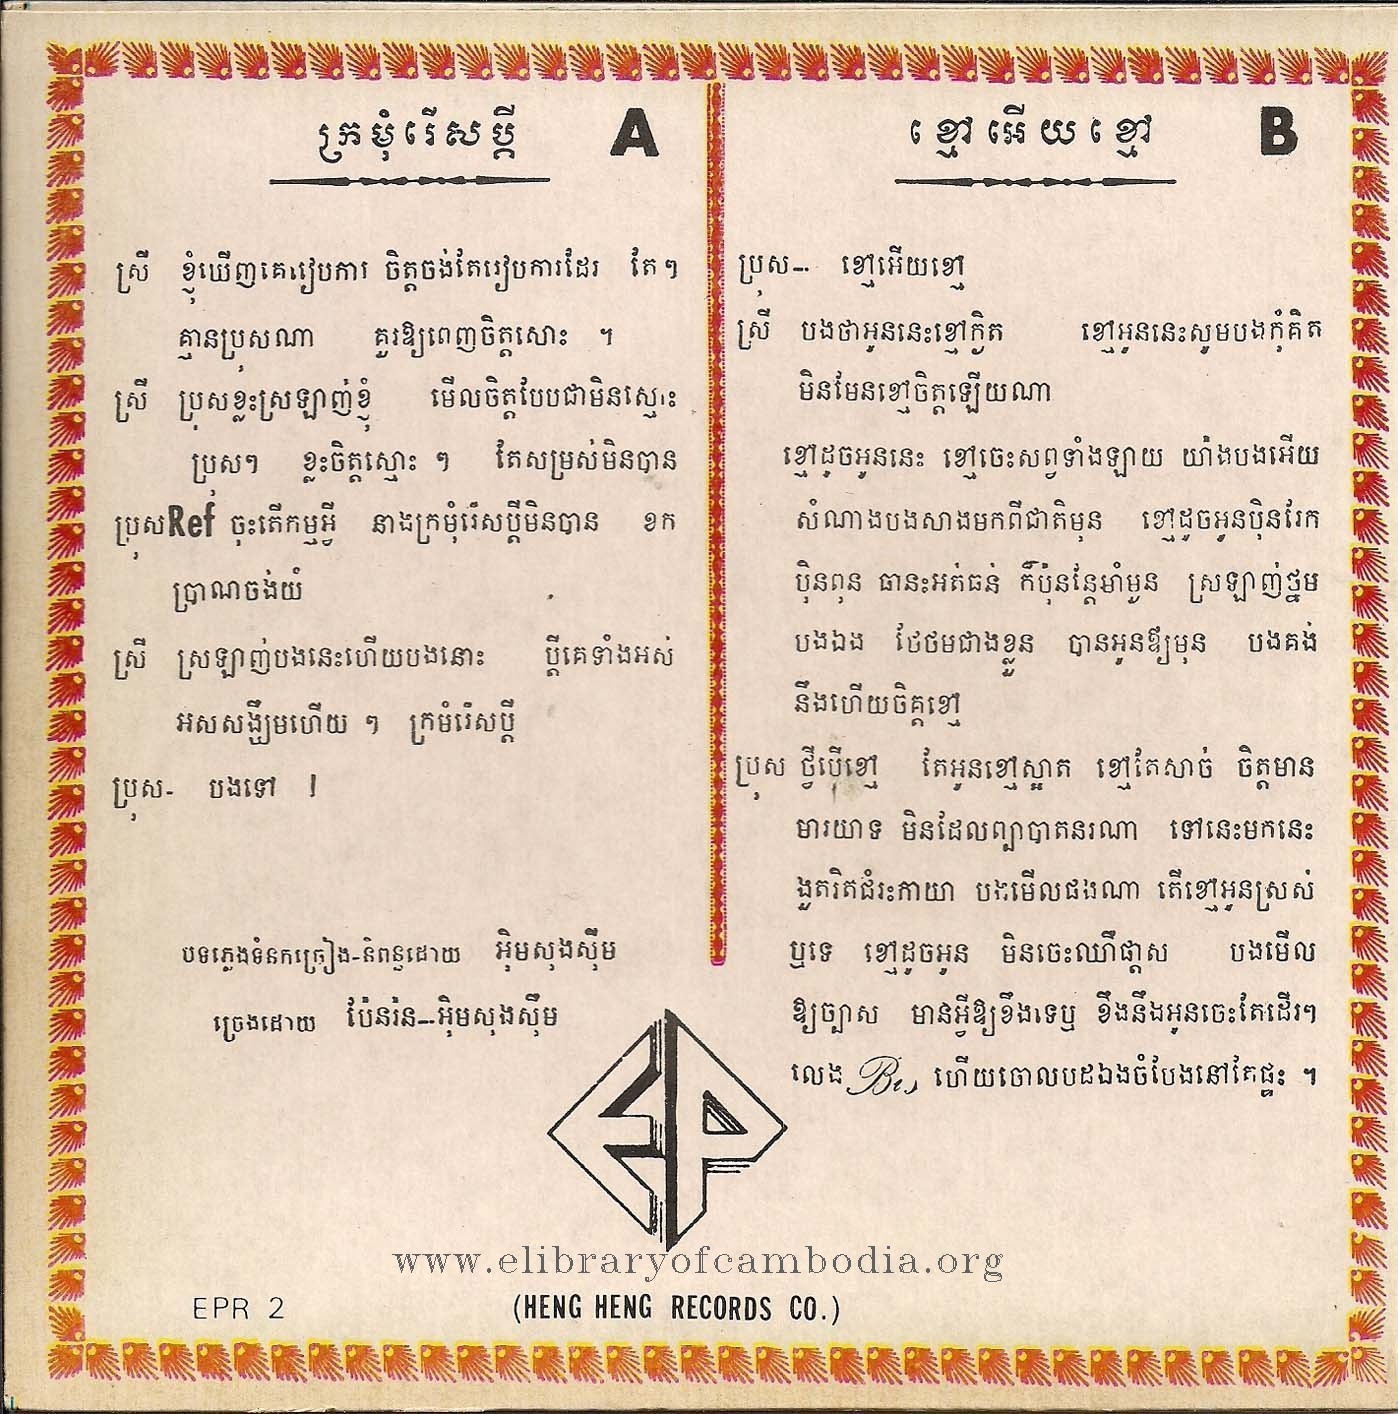 ក្រមុំរើសប្ដី A
ស្រី ខ្ញុំឃើញគេរៀបការ ចិត្តចង់តែរៀបការដែរ តែៗ
គ្មានប្រុសណា គួរឱ្យពេញចិត្តសោះ ។
ស្រី ប្រុសខ្លះស្រឡាញ់ខ្ញុំ មើលចិត្តបែបជាមិនស្មោះ
ប្រុសៗ ខ្លះចិត្តស្មោះ ៗ តែសម្រស់មិនបាន
ប្រុស Ref ចុះតើកម្មអ្វី នាងក្រមុំរើសប្ដីមិនបាន ខក
ប្រាណចង់យំ
ស្រី ស្រឡាញ់បងនេះហើយបងនោះ ប្ដីគេទាំងអស់
អស់សង្ឃឹមហើយ ៗ ក្រមំរើសប្ដី
ប្រុស- បងទៅ !
បទភ្លេងទំនុកច្រៀង-និពន្ធដោយ អ៊ិមសុងស៊ឺម
ច្រៀងដោយ ប៉ែនរ៉ន-អ៊ិមសុងស៊ឺម
ខ្មៅអើយខ្មៅ B
ប្រុស-- ខ្មៅអើយខ្មៅ
ស្រី បងថាអូននេះខ្មៅក្ងិត ខ្មៅអូននេះសូមបងកុំគិត
មិនមែនខ្មៅចិត្តឡើយណា
ខ្មៅដូចអូននេះ ខ្មៅចេះសព្វទាំងឡាយ យ៉ាងបងអើយ
សំណាងបងសាងមកពីជាតិមុន ខ្មៅដូចអូនប៉ិនរែក
ប៉ិនពុន ធានះអត់ធន់ ក៏ប៉ុន្តែមាំមួន ស្រឡាញ់ថ្នម
បងឯង ថែថមជាងខ្លួន បានអូនឪ្យមុន បងគង់
នឹងហើយចិត្តខ្មៅ
ប្រុស ថ្វីបើខ្មៅ តែអូនខ្មៅស្អាត ខ្មៅតែសាច់ ចិត្តមាន
មារយាទ មិនដែលព្យាបាតនរណា ទៅនេះមកនេះ
ងួតរិតជំរះកាយា បងមើលផងណា តើខ្មៅអូនស្រស់
ឬទេ ខ្មៅដូចអូន មិនចេះឈឺផ្ដាស បងមើល
ឱ្យច្បាស មានអ្វីឱ្យខឹងទេឬ ខឹងនឹងអូនចេះតែដើរៗ
លេង Bis ហើយចោលបងឯងចំបែងនៅតែផ្ទះ ។
EP
www.elibraryofcambodia.org
EPR 2 (HENG HENG RECORDS CO.)